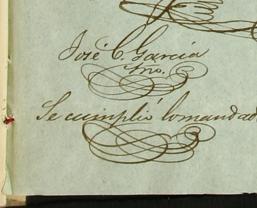 José C. García
Srio.
Se cumplió lo mandad